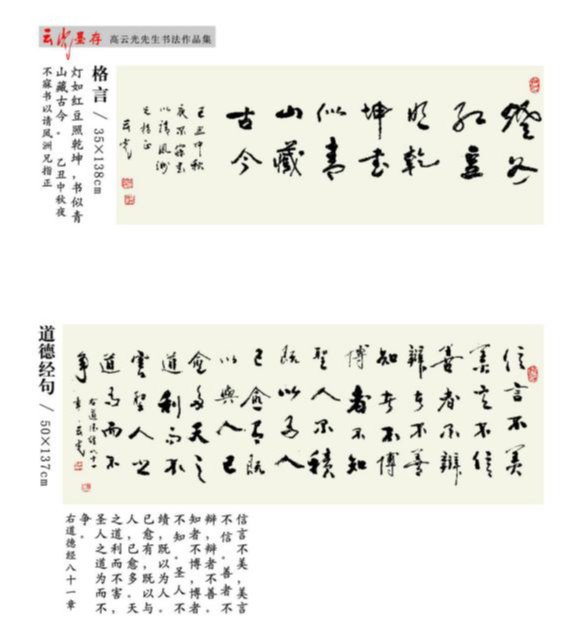 云光墨存 高云光先生书法作品集
燈如
红豆
照乾
坤书
似青
山藏
古今
乙丑中秋
夜不寐书
以请凤洲
兄指正
云光
格言 / 35×138cm
灯如红豆照乾坤，书似青
山藏古今。 乙丑中秋夜
不寐书以请凤洲兄指正
信言不美
美言不信
善者不辩
辩者不善
知者不博
博者不知
聖人不積
既以为人
已愈有既
以與人已
愈多天之
道利而不
害聖人之
道为而不
争 右道德经八十一
章 云光
道德经句 / 50×137cm
信言不美，美言
不信。善者不
辩，辩者不善。
知者不博，博者
不知。圣人不
绩，既以为人。
已愈有，既以与
人，已愈多。天
之道利而不害，
圣人之道为而不
争。
右道德经八十一章